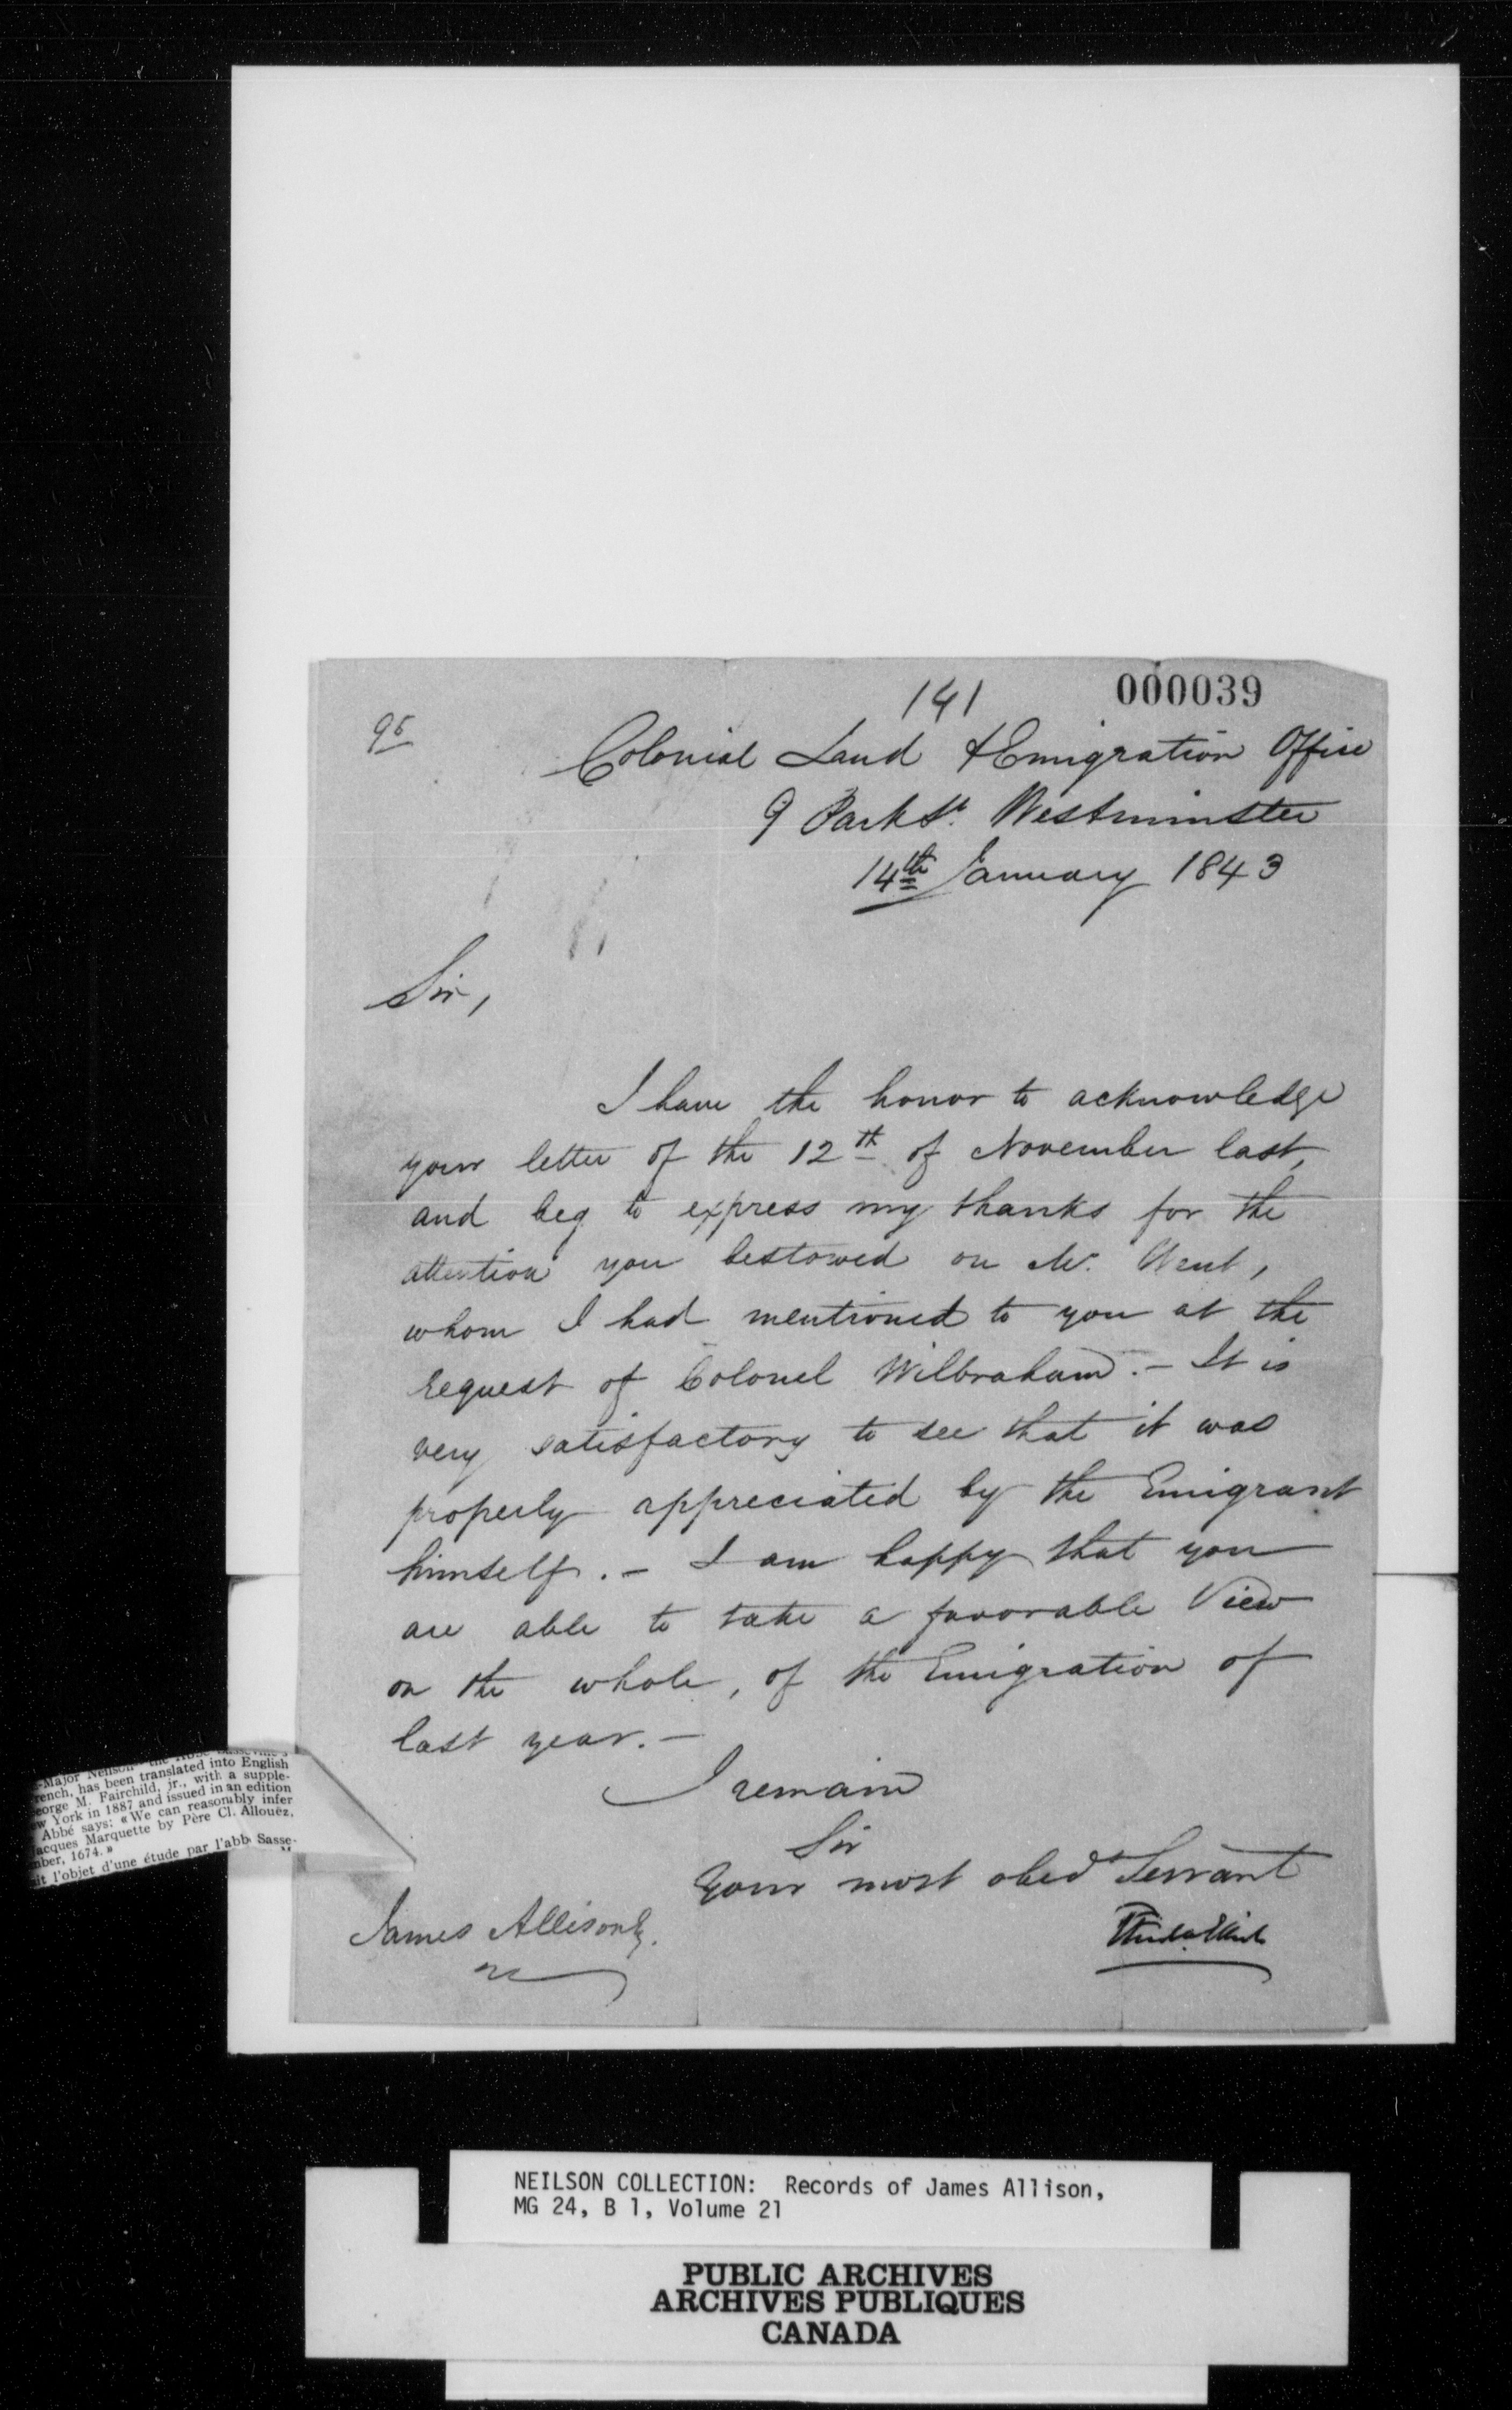 141
000039
95
Colonial Land & Emigration Office
9 Park St. Westminster
14th January 1843
Sir,
I have the honor to acknowledge
your letter of the 12th of November last,
and beg to express my thanks for the
attention you bestowed on Mr.
whom I had mentioned to you at the
request of Colonel Wilbraham. - It is
very satisfactory to see that it was
properly appreciated by the Emigrant
himself. - I am happy that you
are able to take a favorable View
on the whole, of the Emigration of
last year. -
I remain
Sir
Your most obedt Servant
James Allison Esq.
-Major Neilson
rench, has been translated into English
eorge M. Fairchild, jr., with a supple-
ew York in 1887 and issued in an edition
Abbé says: «We can reasonably infer
acques Marquette by Père Cl. Allouëz,
mber, 1674.»
it l'objet d'une étude par l'abbé Sasse-
NEILSON COLLECTION: Records of James Allison,
MG 24, B 1, Volume 21
PUBLIC ARCHIVES
ARCHIVES PUBLIQUES
CANADA